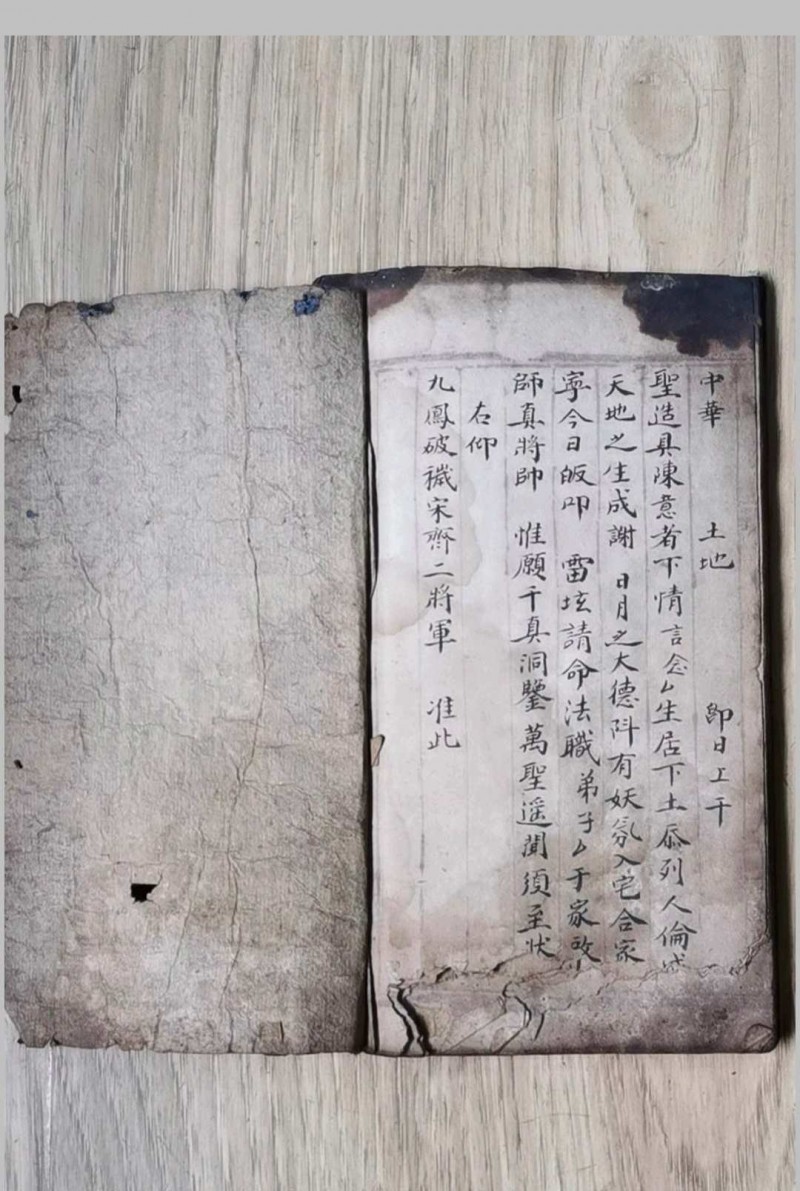 中華 土地 即日上干
聖造具陳意者下情言念厶生居下土忝列人倫
天地之生成謝 日月之大德陡有妖氛入宅合家
寧今日皈叩 雷坛請命法職弟子厶于家啟
師真將帥 惟願千真洞鑒萬聖遥聞須至狀
右仰
九鳳破穢宋齊二將軍 准此